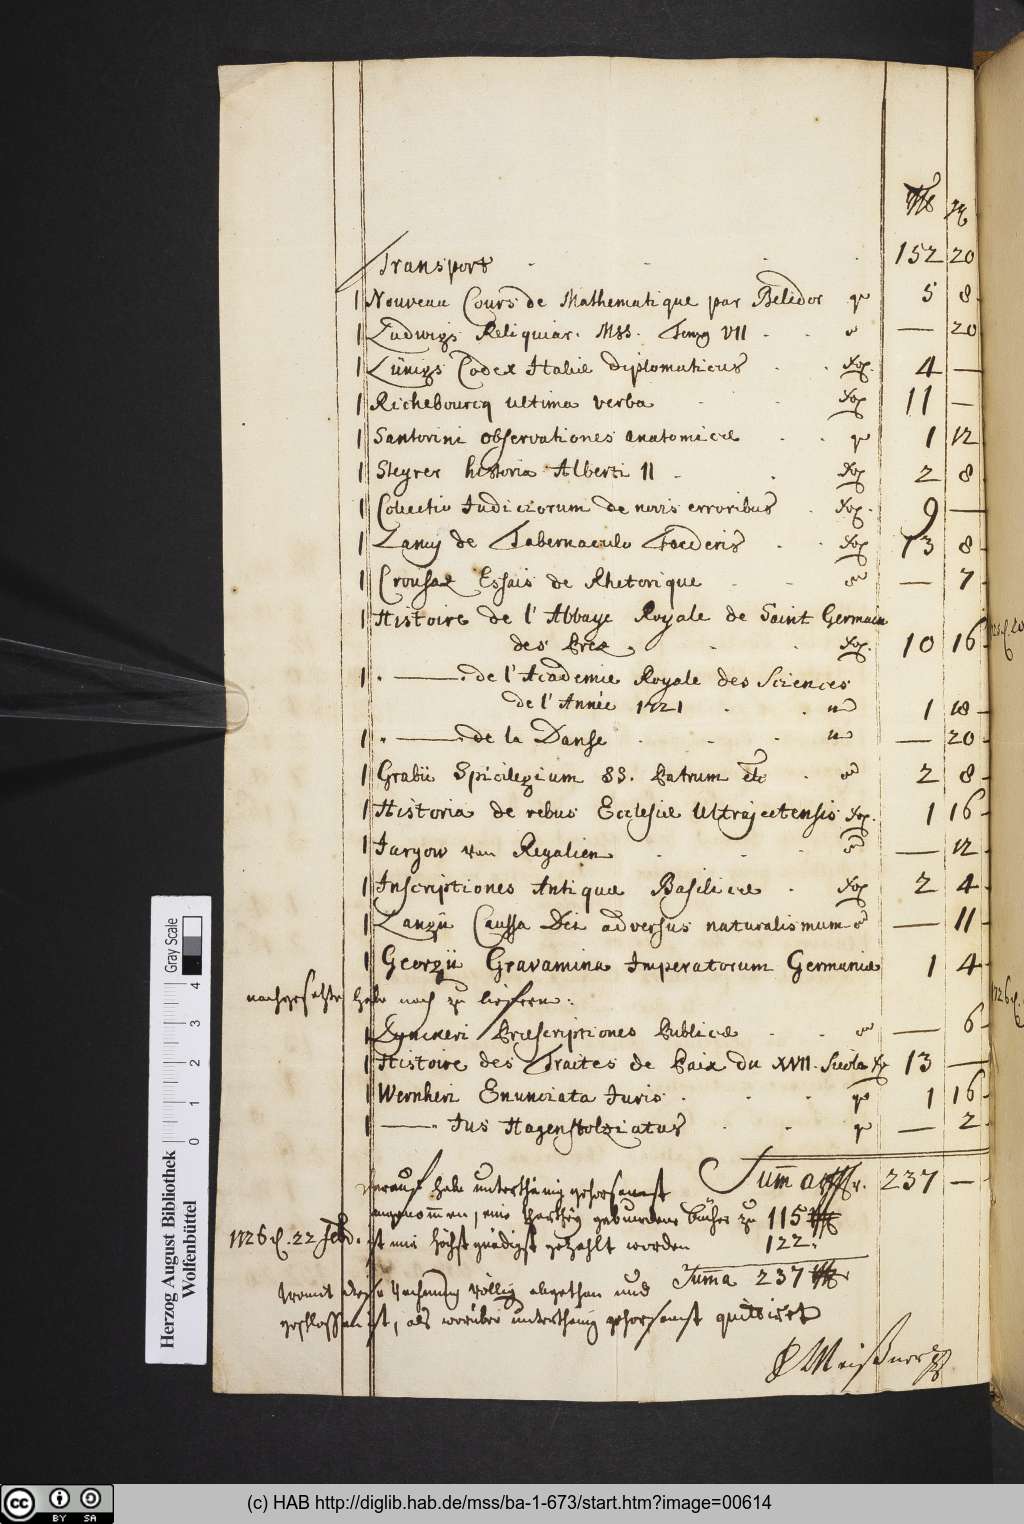 Transport 152 20
1 Nouveau Cours de Mathematique par Belidor 4º 5 8
1 Ludwigs Reliquiar. MSS. Tomg VII — 20
1 Lünigs Codex Italiæ diplomaticus fol. 4 —
1 Richebourcq ultima verba fol. 11 —
1 Santorini observationes anatomicæ 4º 1 12
1 Steyrer historia Alberti II fol. 2 8
1 Collectio Judiciorum de novis erroribus fol. 9 —
1 Lamy de Tabernaculo Foederis fol. 13 8
1 Crousaz Essais de Rhetorique — 7
1 Histoire de l'Abbaye Royale de Saint Germain
des Prez fol. 10 16
1 — de l'Academie Royale des Sciences
de l'Année 1721 1 18
1 — de la Danse — 20
1 Grabii Spicilegium SS. Patrum etc 2 8
1 Historia de rebus Ecclesiæ Ultrajectensis fol. 1 16
1 Jargow von Regalien — 12
1 Inscriptiones Antiquæ Basilicæ fol. 2 4
1 Langii Caussa Dei adversus naturalismum — 11
1 Georgii Gravamina Imperatorum Germaniæ 1 4
nachgesetzte habe noch zu liefern:
1 Lynckeri Præscriptiones Publicæ — 6
1 Histoire des Traites de Paix du XVII. Siecle fol. 13 —
1 Wernheri Enunciata Juris 4º 1 16
1 — Jus Hagenstolziatus 4º — 2
Summa 237 —
Hierauf habe unterthänig gehorsamst
angenommen, eine Parthey gebundene Bücher zu 115
1726 d. 22 Febr. ist mir höchst gnädigst gezahlt worden 122.
Summa 237
Womit diese Rechnung völlig abgethan und
geschlossen ist, als worüber unterthänig gehorsamst quitiret
Meißner
Herzog August Bibliothek
Wolfenbüttel
0 1 2 3 4
Gray Scale
cc BY SA
(c) HAB http://diglib.hab.de/mss/ba-1-673/start.htm?image=00614